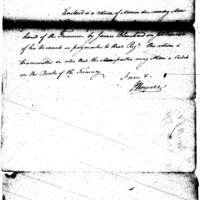 Enclosed is a return of Monies due sundry Men
hands of the Treasurer by James Blanchard on
of his account as paymaster to that Regt the return is
transmitted in order that the parties may have a Credit
on the Books of the Treasury
I am &
J Howell